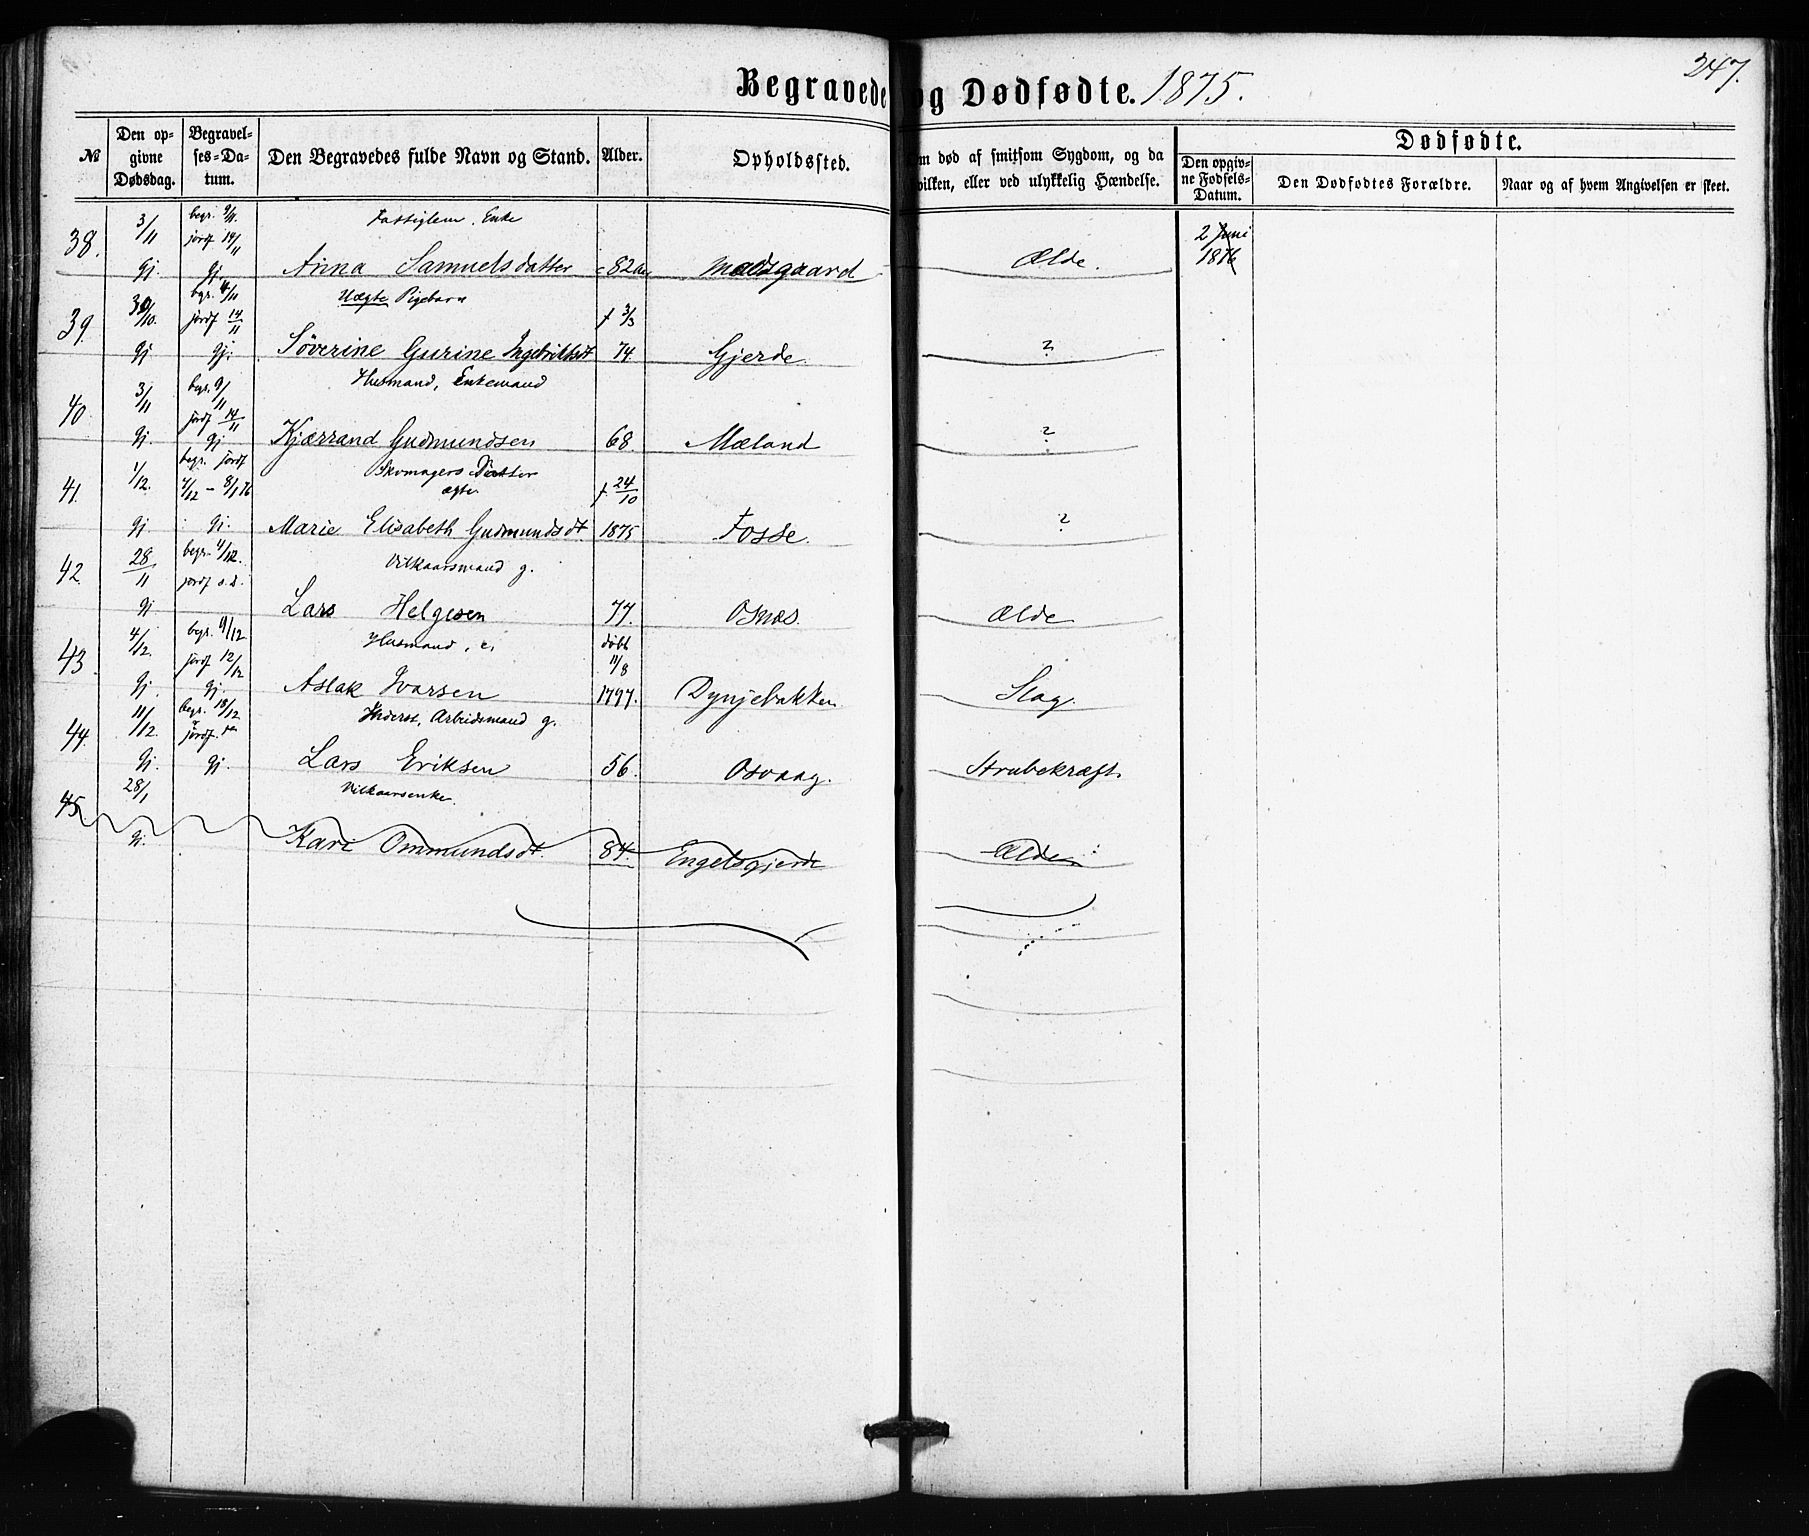 247.
Begravede og Dødfødte. 1875.
№
Den opgivne Dødsdag.
Begravelses-Datum.
Den Begravedes fulde Navn og Stand.
Alder.
Opholdssted.
m død af smitsom Sygdom, og da
hvilken, eller ved ulykkelig Hændelse.
Dødfødte.
Den opgivne Fødsels-Datum.
Den Dødfødtes Forældre.
Naar og af hvem Angivelsen er skeet.
38. 3/11 begr. 9/11. jordf 14/11 Fattiglem, Enke 2 Juni 1876
gj. gj. Anna Samuelsdatter c 82 Madsgaard Ælde.
39. 30/10. begr. 4/11 jordf 14/11 Uægte Pigebarn f 3/3
gj gj. Söverine Gurine Ingebrittsdt 74 Gjerde. ?
40. 3/11 begr. 9/11 jordf 14/11 Husmand, Enkemand
gj. gj Kjærrand Gudmundsen 68. Mæland ?
41. 1/12. begr. jordf 7/12 – 8/1 76 Skomagers Datter ægte f 24/10
gj gj. Marie Elisabeth Gudmundsdt. 1875 Fosse. ?
42. 28/11 begr. 4/12. jordf s. d. Vilkaarsmand g.
gj Lars Helgesen 77. Osnes. Ælde
43. 4/12. begr. 9/12 jordf 12/12 Husmand, e. döbt 11/8
gj. gj. Aslak Ivarsen 1797. Dynjebakken Slag.
44. 11/12. begr. 18/12 jordf. Inderst, Arbeidsmand g.
gj. gj. Lars Eriksen 56. Osvaag. Strubekræft.
45. 28/1 Vilkaarsenke.
gj. Kari Ommundsdt. 84. Engelsgjerde Ælde